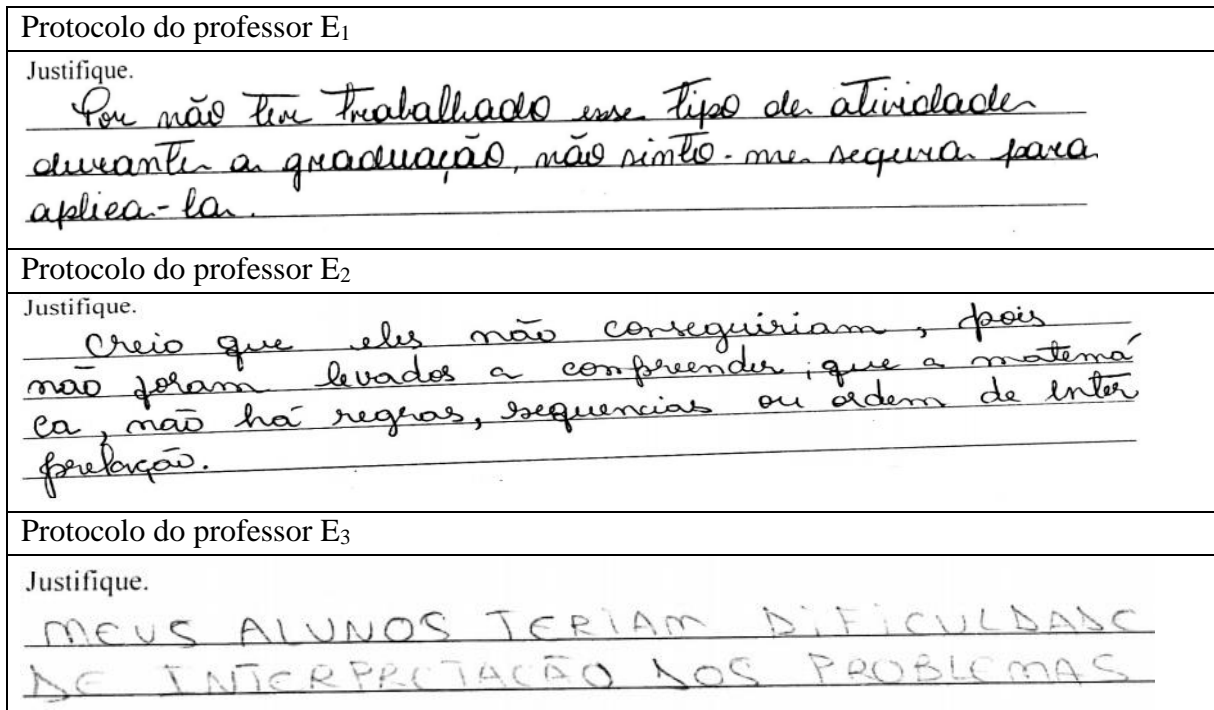 Protocolo do professor E₁
Justifique.
Por não ter trabalhado esse tipo de atividade
durante a graduação, não sinto-me segura para
aplica-la.
Protocolo do professor E₂
Justifique.
Creio que eles não conseguiriam, pois
não foram levados a compreender, que a matemá
ca, não há regras, sequencias ou ordem de inter
pretação.
Protocolo do professor E₃
Justifique.
MEUS ALUNOS TERIAM DIFICULDADE
DE INTERPRETAÇÃO DOS PROBLEMAS